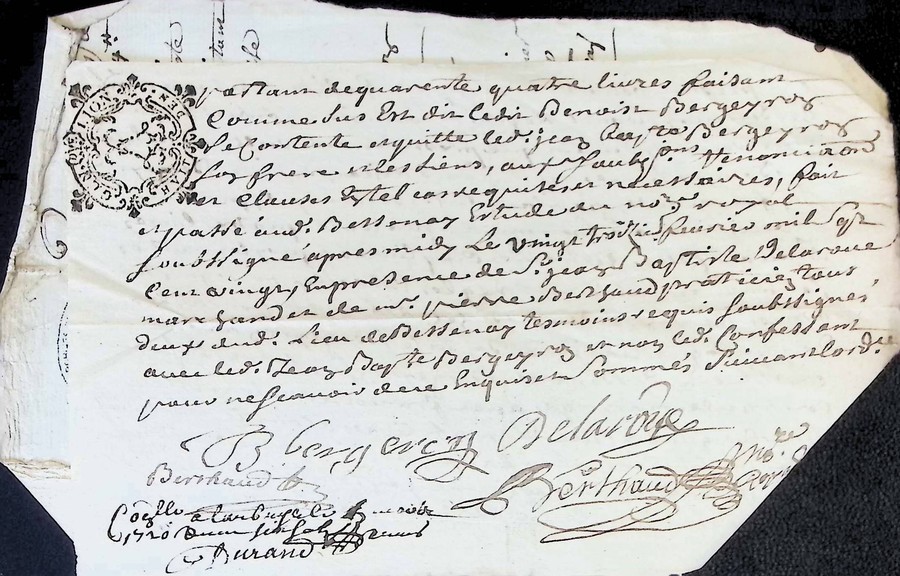 partant de quarente quatre livres faisant
Comme sus Est dit ledit Benoist Bergeyron
Se Contente et quitte led. jean bapte Bergeyron
son frere et les siens, aux Renonciaõns
et Clauses requises et nécessaires, fait
et passé aud. Bessenay Estude du no.re royal
soubssigné apres midy Le vingt trois.e feurier mil sept
Cent vingt, En presence de Sr. jean Baptiste Delaroue
marchand et de me. pierre Berthaud praticien tous
deux dud. Lieu de Bessenay tesmoins requis soubssignés
avec led. Jean Bapte Bergeyron et non led. Confessant
pour ne scavoir de ce Enquis et Sommés suivant lord.ce
B bergeron Delaroüe
Berthaud
Berthaud no.re
Con.lle a larbresle le
1720
Durand
GEN DE LION